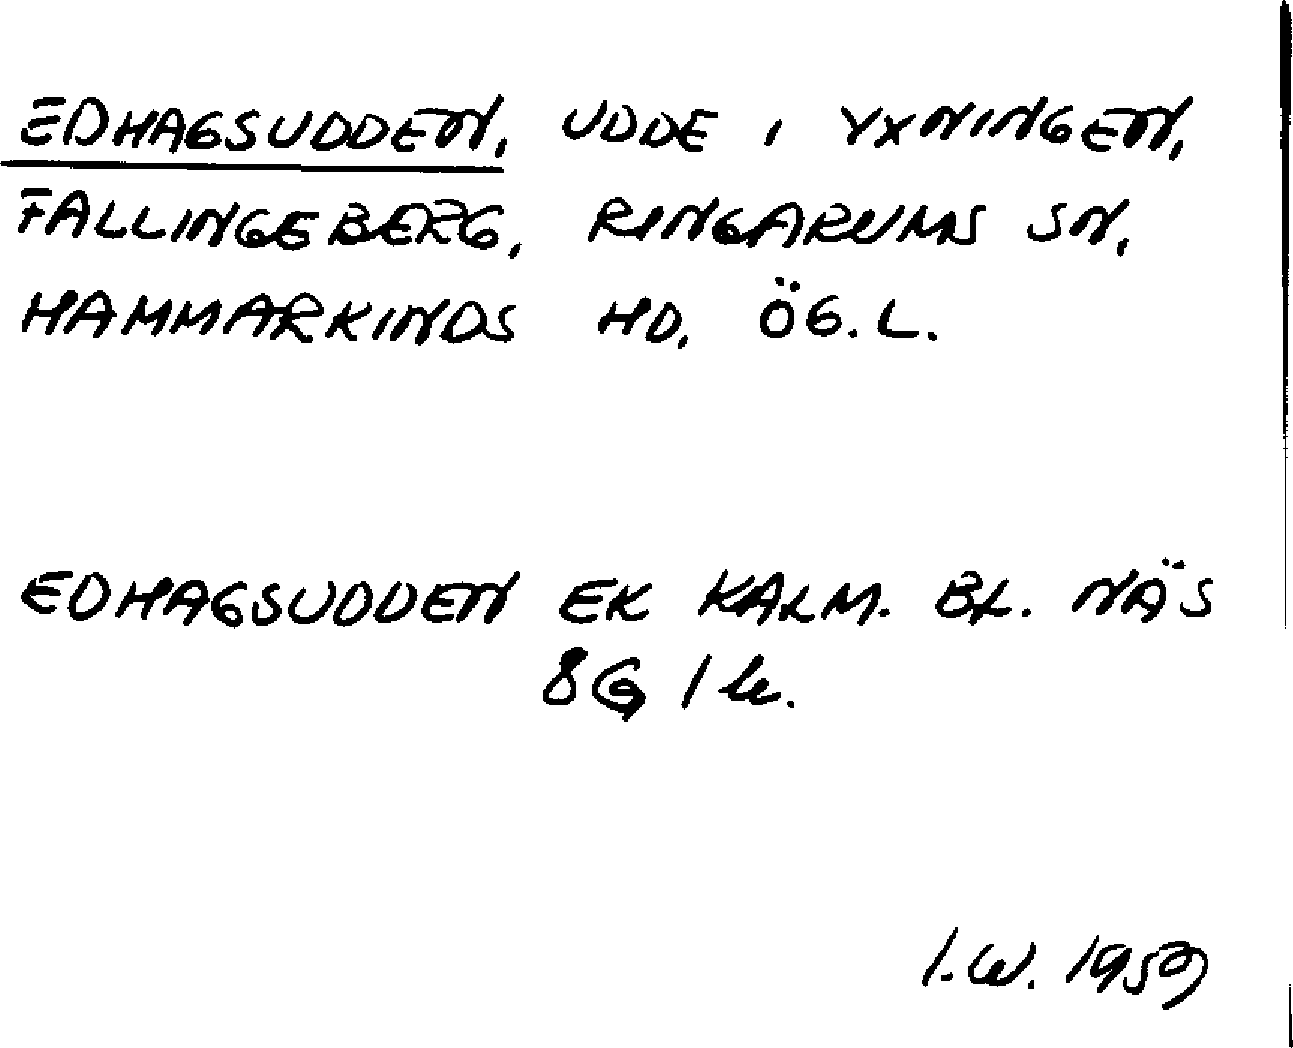 EDHAGSUDDEN, UDDE I YXNINGEN,
FALLINGEBERG, RINGARUMS SN,
HAMMARKINDS HD, ÖG. L.
EDHAGSUDDEN EK KALM. BL. NÄS
8G 1 le.
I.W. 1959